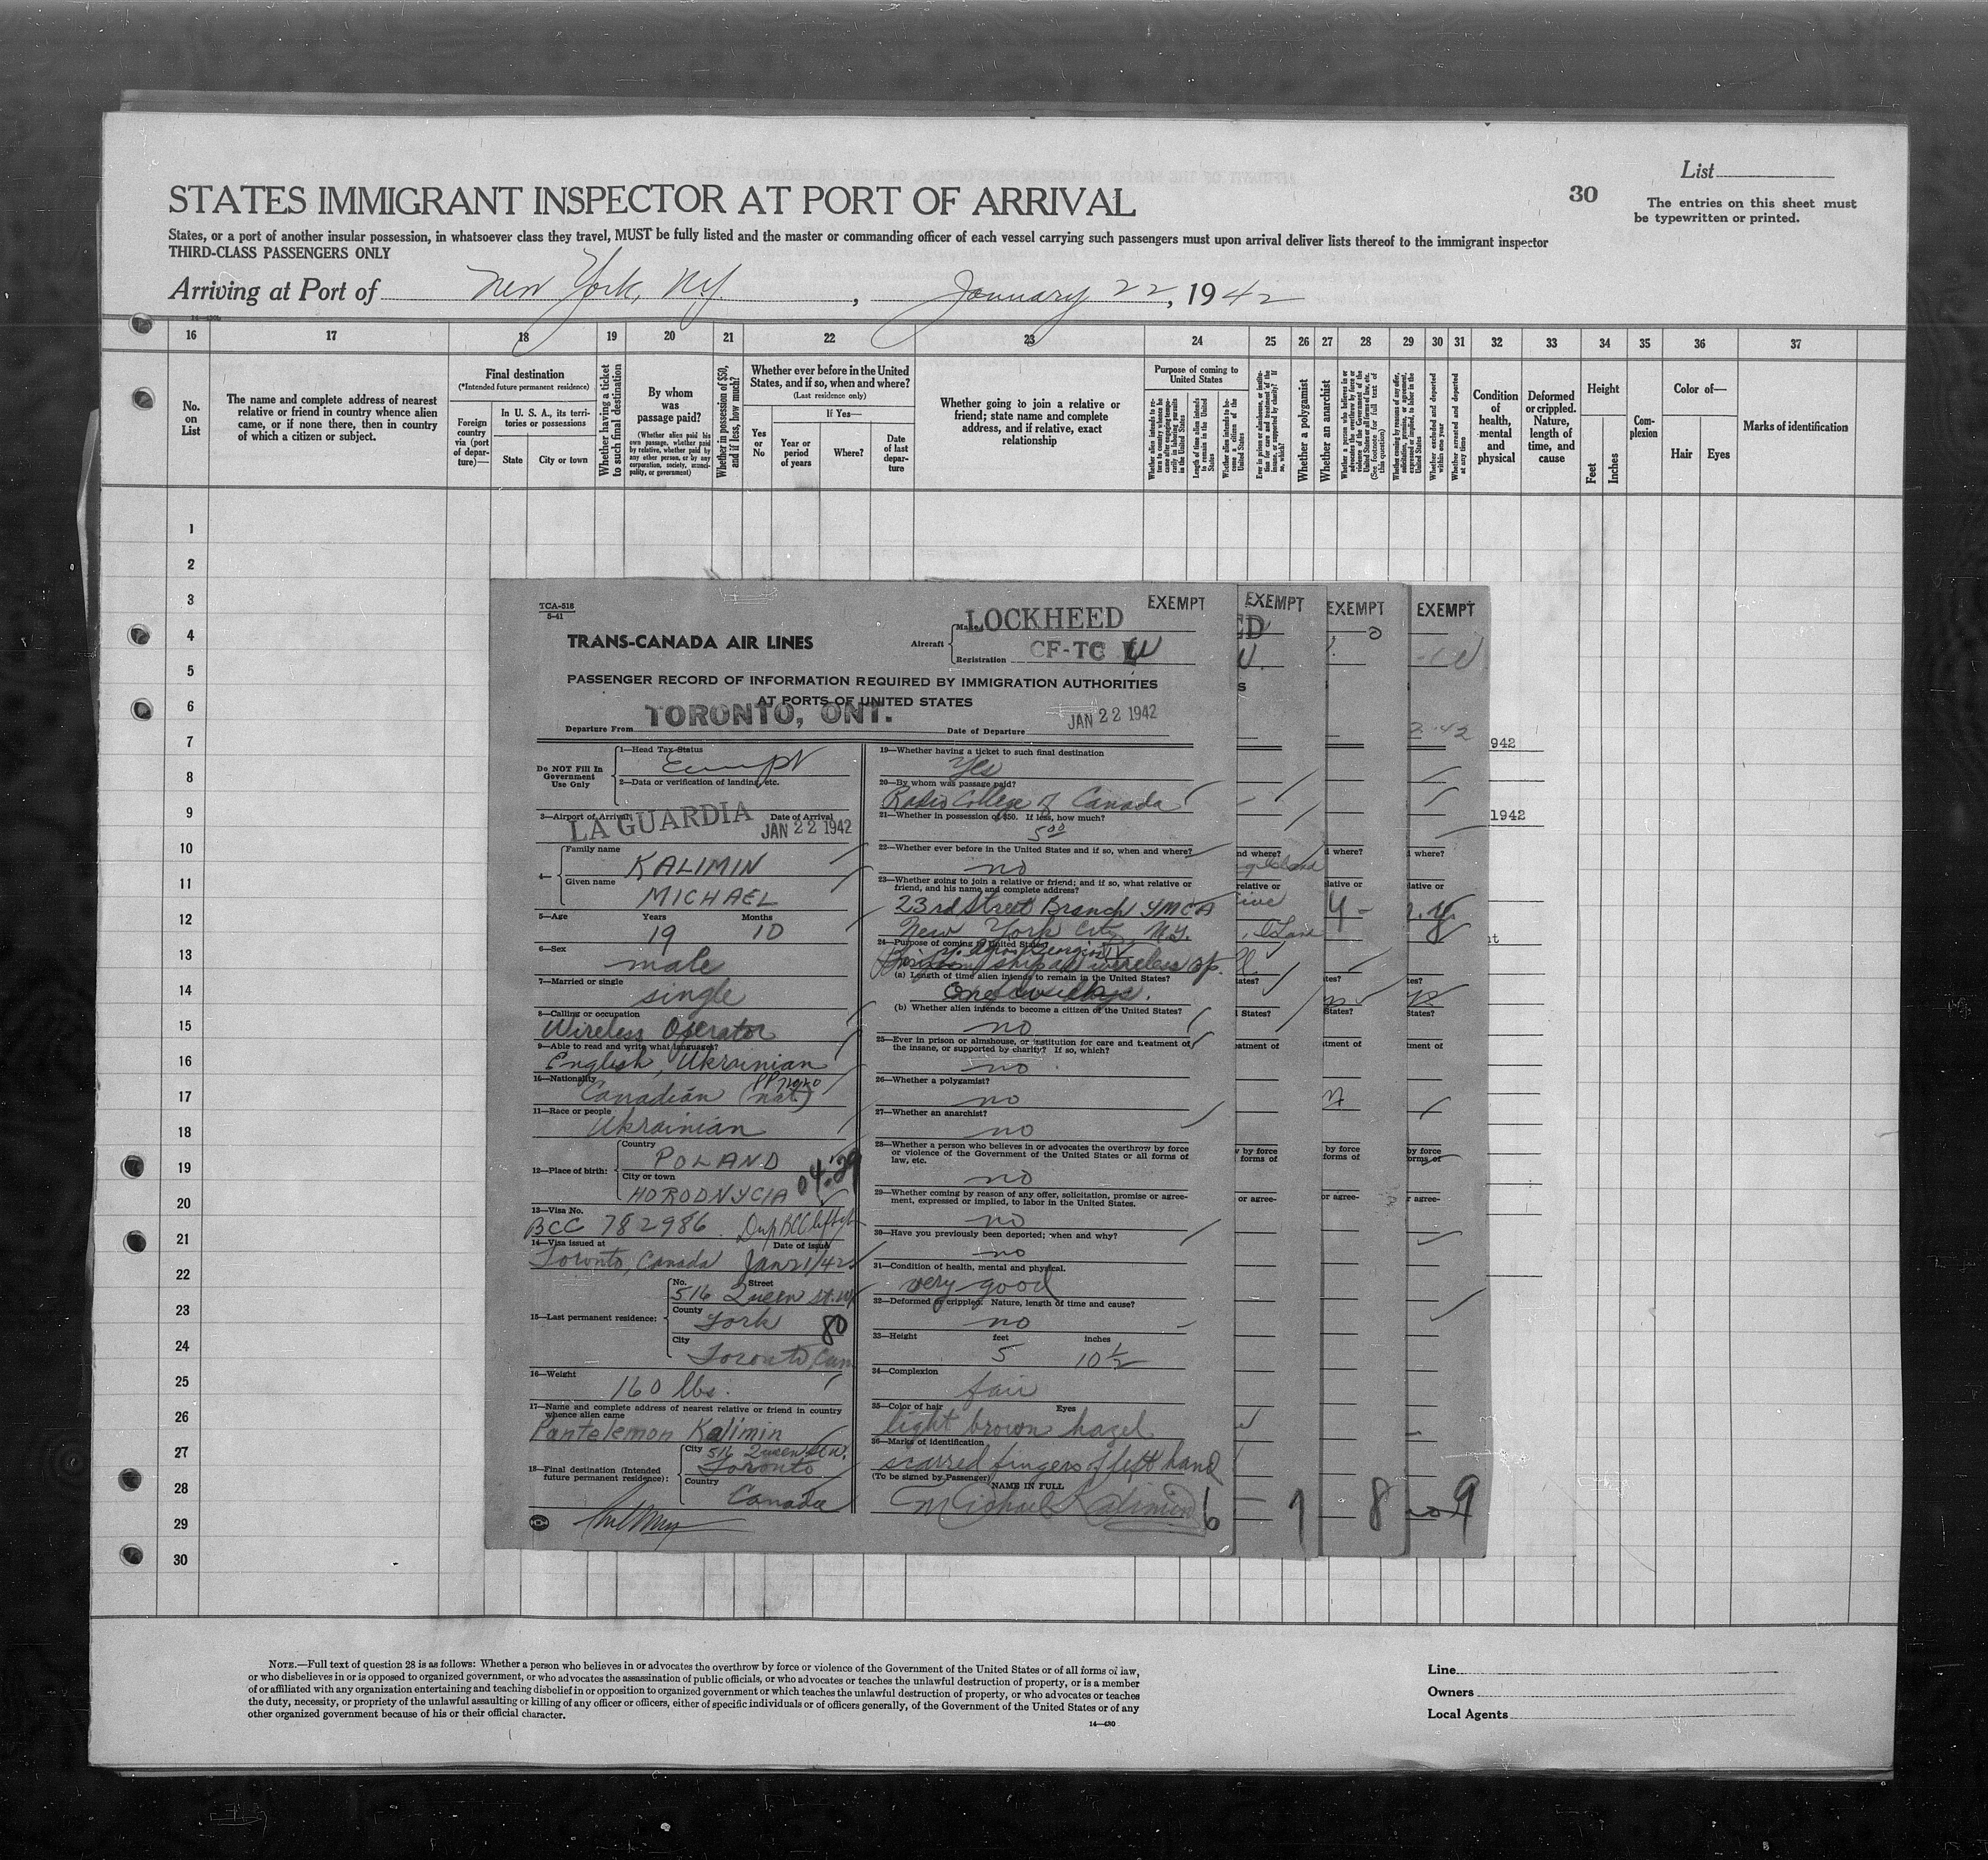 List
30
The entries on this sheet must
be typewritten or printed.
STATES IMMIGRANT INSPECTOR AT PORT OF ARRIVAL
States, or a port of another insular possession, in whatsoever class they travel, MUST be fully listed and the master or commanding officer of each vessel carrying such passengers must upon arrival deliver lists thereof to the immigrant inspector
THIRD-CLASS PASSENGERS ONLY
Arriving at Port of New York, NY. , January 22, 1942
16 17 18 19 20 21 22 23 24 25 26 27 28 29 30 31 32 33 34 35 36 37
No. on List
The name and complete address of nearest relative or friend in country whence alien came, or if none there, then in country of which a citizen or subject.
Final destination
(*Intended future permanent residence)
Foreign country via (port of departure)—
In U. S. A., its territories or possessions
State
City or town
Whether having a ticket to such final destination
By whom was passage paid?
(Whether alien paid his own passage, whether paid by relative, whether paid by any other person, or by any corporation, society, municipality, or government)
Whether in possession of $50, and if less, how much?
Whether ever before in the United States, and if so, when and where?
(Last residence only)
Yes or No
If Yes—
Year or period of years
Where?
Date of last departure
Whether going to join a relative or friend; state name and complete address, and if relative, exact relationship
Purpose of coming to United States
Length of time alien intends to remain in the United States
Whether alien intends to become a citizen of the United States
Whether a polygamist
Whether an anarchist
Condition of health, mental and physical
Deformed or crippled. Nature, length of time, and cause
Height
Feet
Inches
Complexion
Color of—
Hair
Eyes
Marks of identification
1
2
3
4
5
6
7
8
9
10
11
12
13
14
15
16
17
18
19
20
21
22
23
24
25
26
27
28
29
30
TCA-518
5-41
TRANS-CANADA AIR LINES
Aircraft
Make LOCKHEED
Registration CF-TC W
EXEMPT
EXEMPT
EXEMPT
EXEMPT
PASSENGER RECORD OF INFORMATION REQUIRED BY IMMIGRATION AUTHORITIES
AT PORTS OF UNITED STATES
Departure From TORONTO, ONT.
Date of Departure JAN 22 1942
Do NOT Fill In Government Use Only
1—Head Tax Status
Exempt
2—Data or verification of landing, etc.
3—Airport of Arrival LA GUARDIA
Date of Arrival JAN 22 1942
4—
Family name KALIMIN
Given name MICHAEL
5—Age Years 19 Months 10
6—Sex male
7—Married or single single
8—Calling or occupation
Wireless Operator
9—Able to read and write what languages?
English, Ukrainian
10—Nationality
Canadian (nat)
11—Race or people
Ukrainian
12—Place of birth:
Country POLAND
City or town HORODNYCIA
13—Visa No.
BCC 782986
14—Visa issued at Toronto, Canada
Date of issue Jan 21/42
15—Last permanent residence:
No. 516 Street Queen St. W
County York
80
City Toronto, Can
16—Weight 160 lbs.
17—Name and complete address of nearest relative or friend in country whence alien came
Pantelemon Kalimin
516 Queen St. W.
18—Final destination (Intended future permanent residence):
City Toronto
Country Canada
19—Whether having a ticket to such final destination
Yes
20—By whom was passage paid?
Radio College of Canada
21—Whether in possession of $50. If less, how much?
5.00
22—Whether ever before in the United States and if so, when and where?
no
23—Whether going to join a relative or friend; and if so, what relative or friend, and his name and complete address?
23rd Street Branch YMCA
New York City, N.Y.
24—Purpose of coming to United States?
ship as wireless op.
(a) Length of time alien intends to remain in the United States?
(b) Whether alien intends to become a citizen of the United States?
no
25—Ever in prison or almshouse, or institution for care and treatment of the insane, or supported by charity? If so, which?
no
26—Whether a polygamist?
no
27—Whether an anarchist?
no
28—Whether a person who believes in or advocates the overthrow by force or violence of the Government of the United States or all forms of law, etc.
no
29—Whether coming by reason of any offer, solicitation, promise or agreement, expressed or implied, to labor in the United States.
no
30—Have you previously been deported; when and why?
no
31—Condition of health, mental and physical.
very good
32—Deformed or crippled. Nature, length of time and cause?
no
33—Height feet 5 inches 10½
34—Complexion
fair
35—Color of hair light brown Eyes hazel
36—Marks of identification
scarred fingers of left hand
(To be signed by Passenger) NAME IN FULL
Michael Kalimin
6
7
8
9
NOTE.—Full text of question 28 is as follows: Whether a person who believes in or advocates the overthrow by force or violence of the Government of the United States or of all forms of law,
or who disbelieves in or is opposed to organized government, or who advocates the assassination of public officials, or who advocates or teaches the unlawful destruction of property, or is a member
of or affiliated with any organization entertaining and teaching disbelief in or opposition to organized government or which teaches the unlawful destruction of property, or who advocates or teaches
the duty, necessity, or propriety of the unlawful assaulting or killing of any officer or officers, either of specific individuals or of officers generally, of the Government of the United States or of any
other organized government because of his or their official character.
14—430
Line
Owners
Local Agents